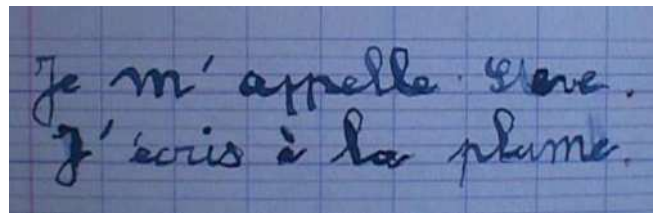 Je m'appelle
J'écris à la plume.